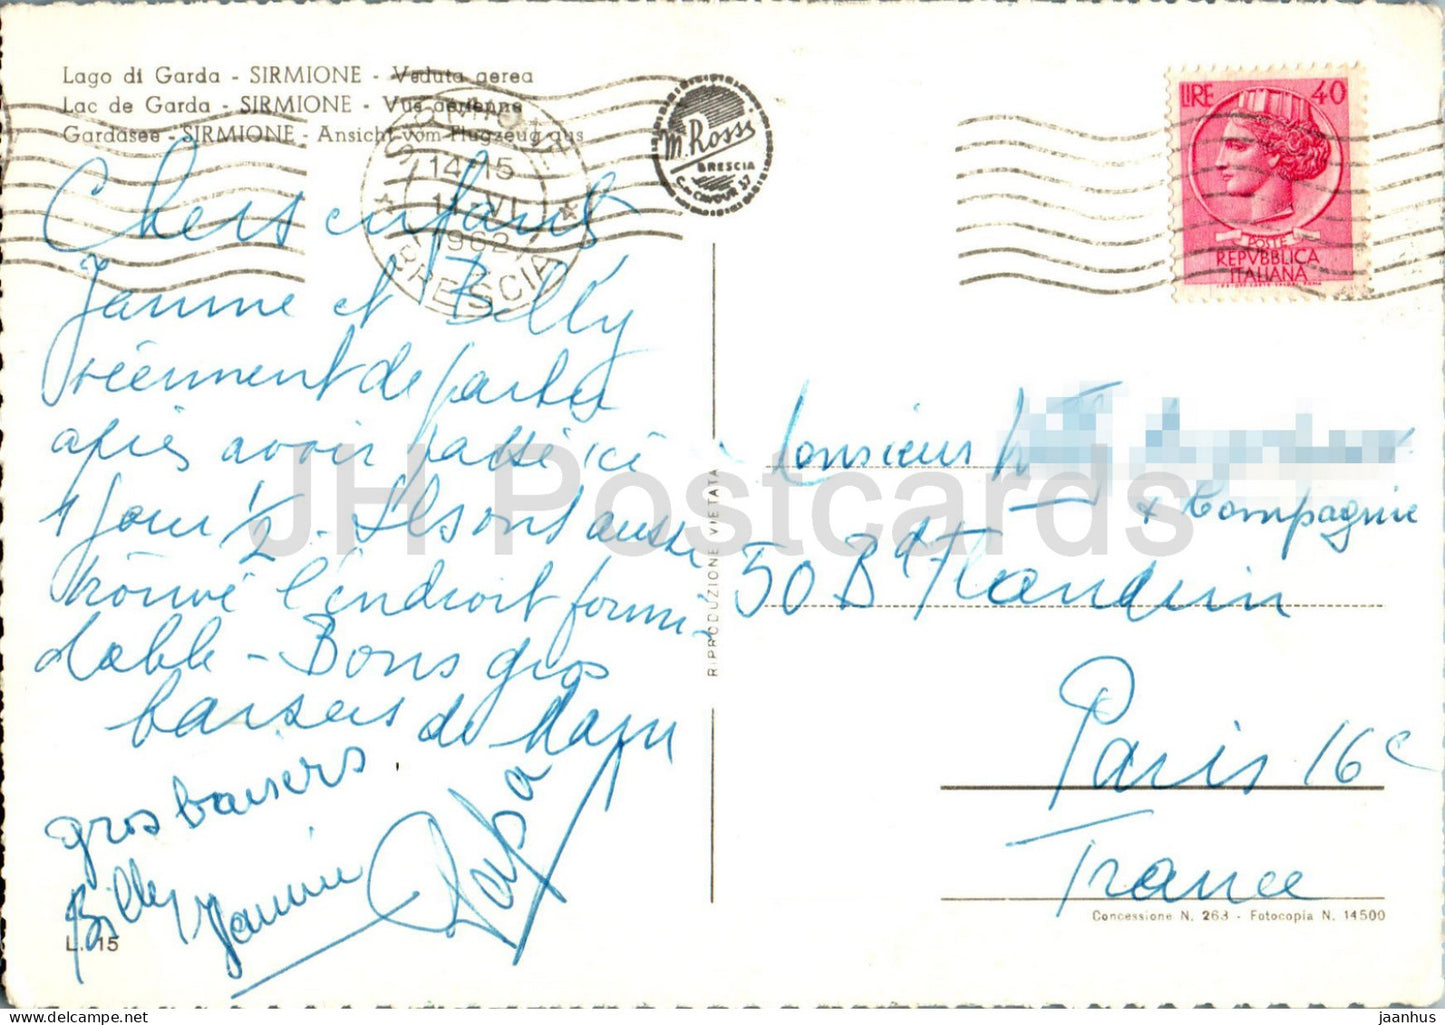 Lago di Garda - SIRMIONE - Veduta aerea
Lac de Garda - SIRMIONE - Vue aerienne
Gardasee - SIRMIONE - Ansicht vom Flugzeug aus
SIRMIONE
14-15
VI
1962
BRESCIA
M. Rossi
BRESCIA
C. CAVOUR 37
LIRE 40
POSTE
REPVBBLICA
ITALIANA
Chers enfants
Jannie et Billy
viennent de partir
après avoir passé ici
1 jour 1/2 - Ils ont aussi
trouvé l'endroit formi
dable - Bons gros
baisers de Mam
Papa
gros baisers
Billy Jannie
RIPRODUZIONE VIETATA
Monsieur
& Compagnie
50 Bd Flandrin
Paris 16e
France
Concessione N. 263 - Fotocopia N. 14500
L. 15
JH Postcards
jaanhus.com